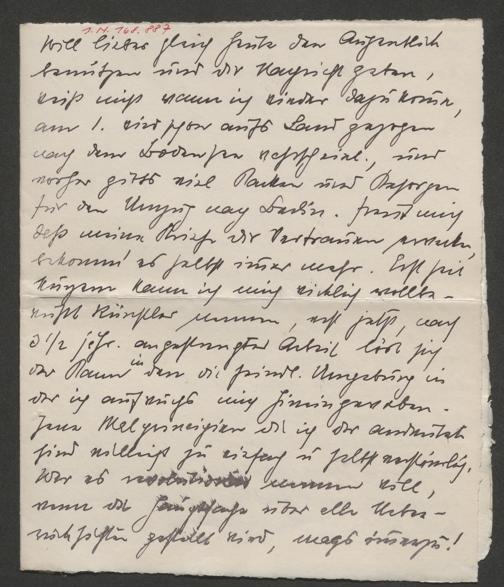 I.N. 168.887
Will lieber gleich heute den Augenblick
benützen und dir Nachricht geben,
weiß nicht wann ich wieder dazu komme,
am 1. wird schon aufs Land gezogen
nach dem Bodensee, und
vorher gibts viel Packen und Besorgen
für den Umzug nach Berlin. Freut mich
daß meine Briefe dir Vertrauen erwecken,
bekomm' es selbst immer mehr. Erst seit
kurzem kann ich mich richtig vollbe-
wußt Künstler nennen, erst jetzt, nach
3 1/2 jähr. angestrengter Arbeit löst sich
der Bann in den die feindl. Umgebung in
der ich aufwuchs mich
Jene Malprinzipien die ich dir andeutete
sind vielleicht zu einfach u selbstverständlich,
Wer es revolutionär nennen will,
wenn die Hauptsache über alle Neben-
rücksichten gestellt wird, mags immerzu!